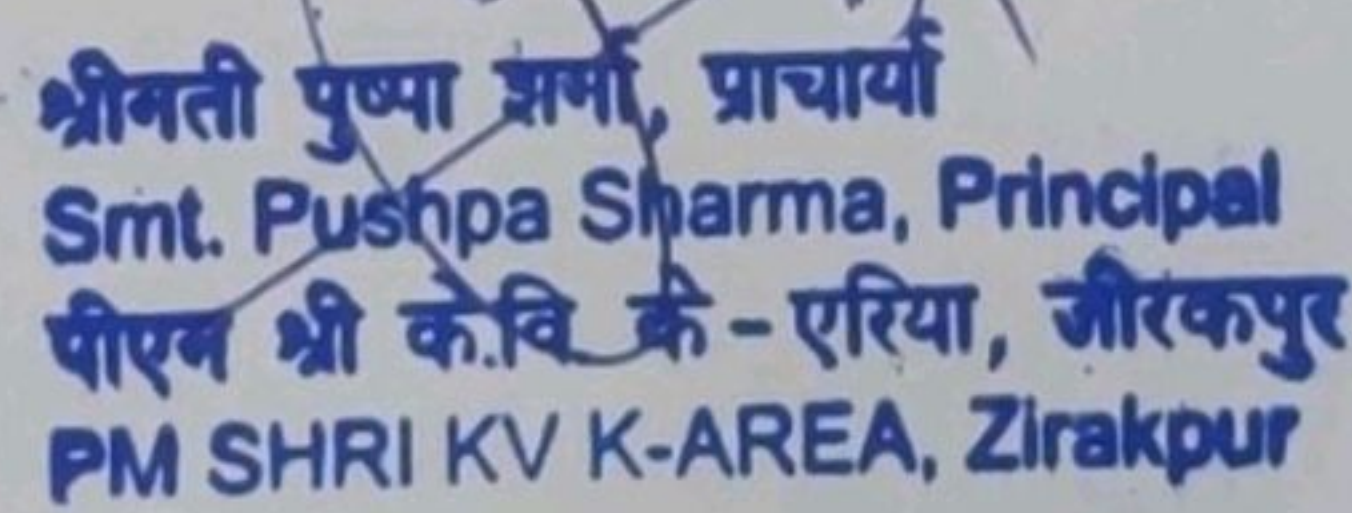 श्रीमती पुष्पा शर्मा, प्राचार्या
Smt. Pushpa Sharma, Principal
पीएम श्री के.वि. के - एरिया, जीरकपुर
PM SHRI KV K-AREA, Zirakpur